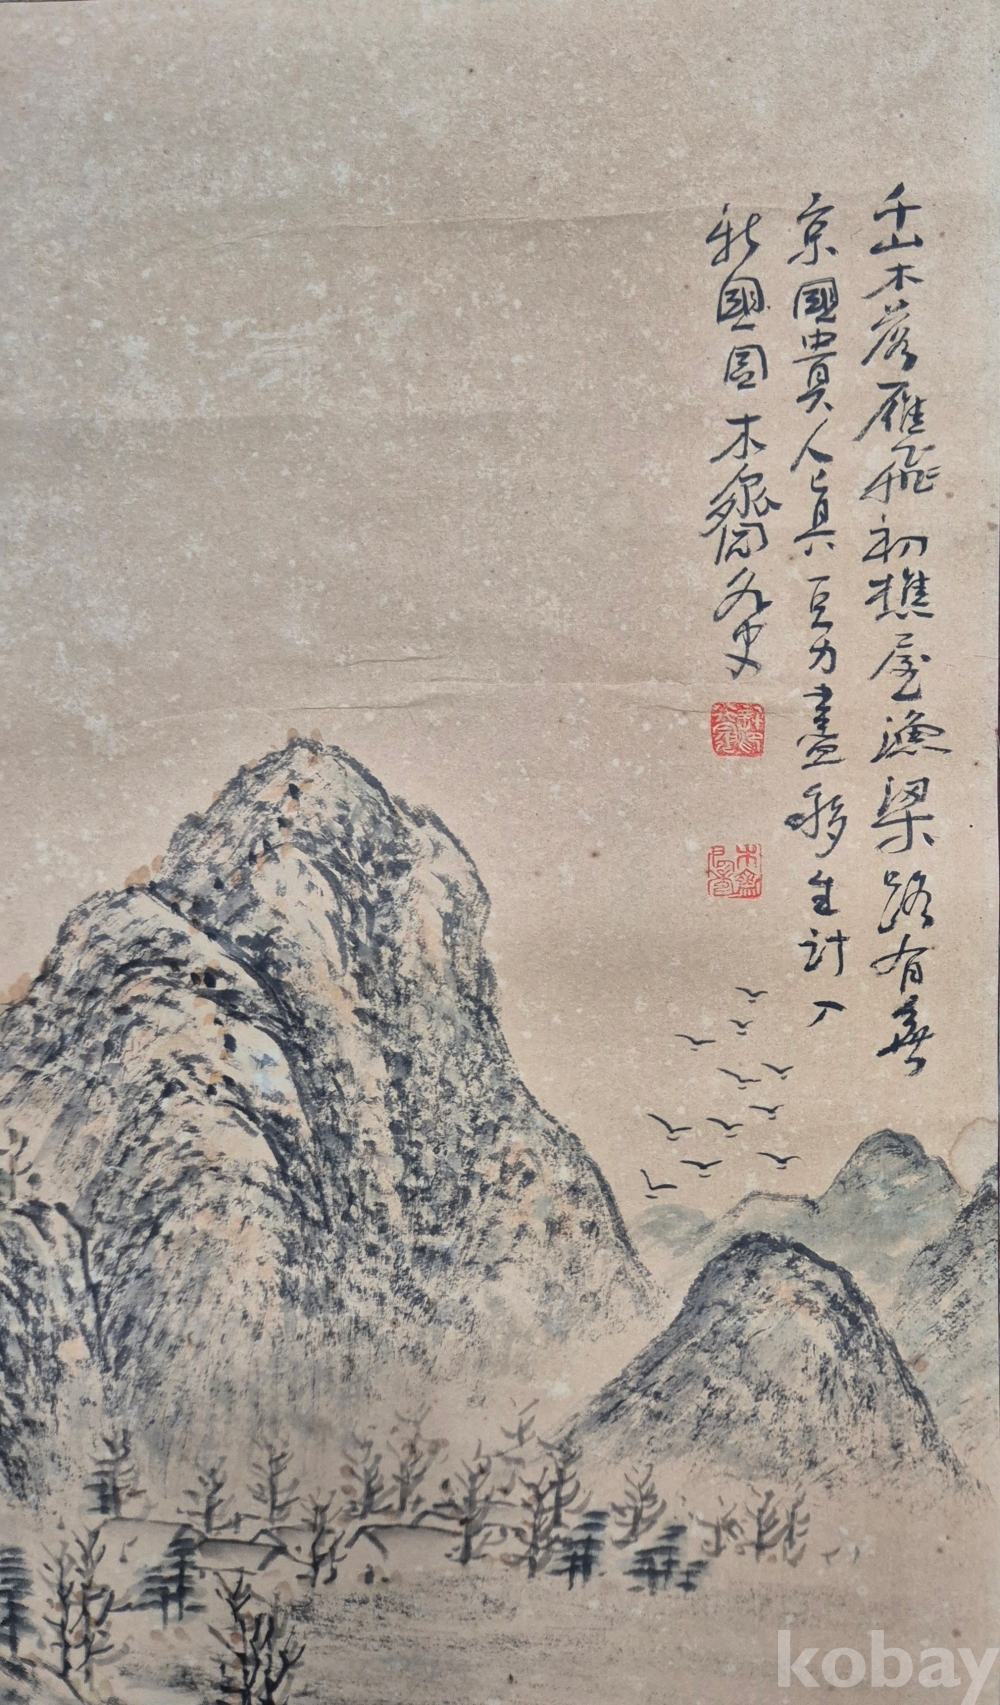 千山木落雁飛初樵屋漁梁路有無
京國貴人真力盡移生計入
新木齋外史
kobay